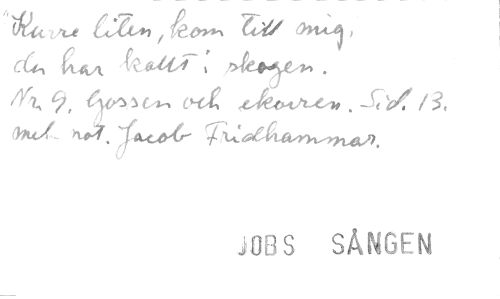 "Kurre liten, kom till mig,
du har kallt i skogen.
Nr. 9. Gossen och ekorren. Sid. 13.
mel. not. Jacob Fridhammar.
JOBS SÅNGEN